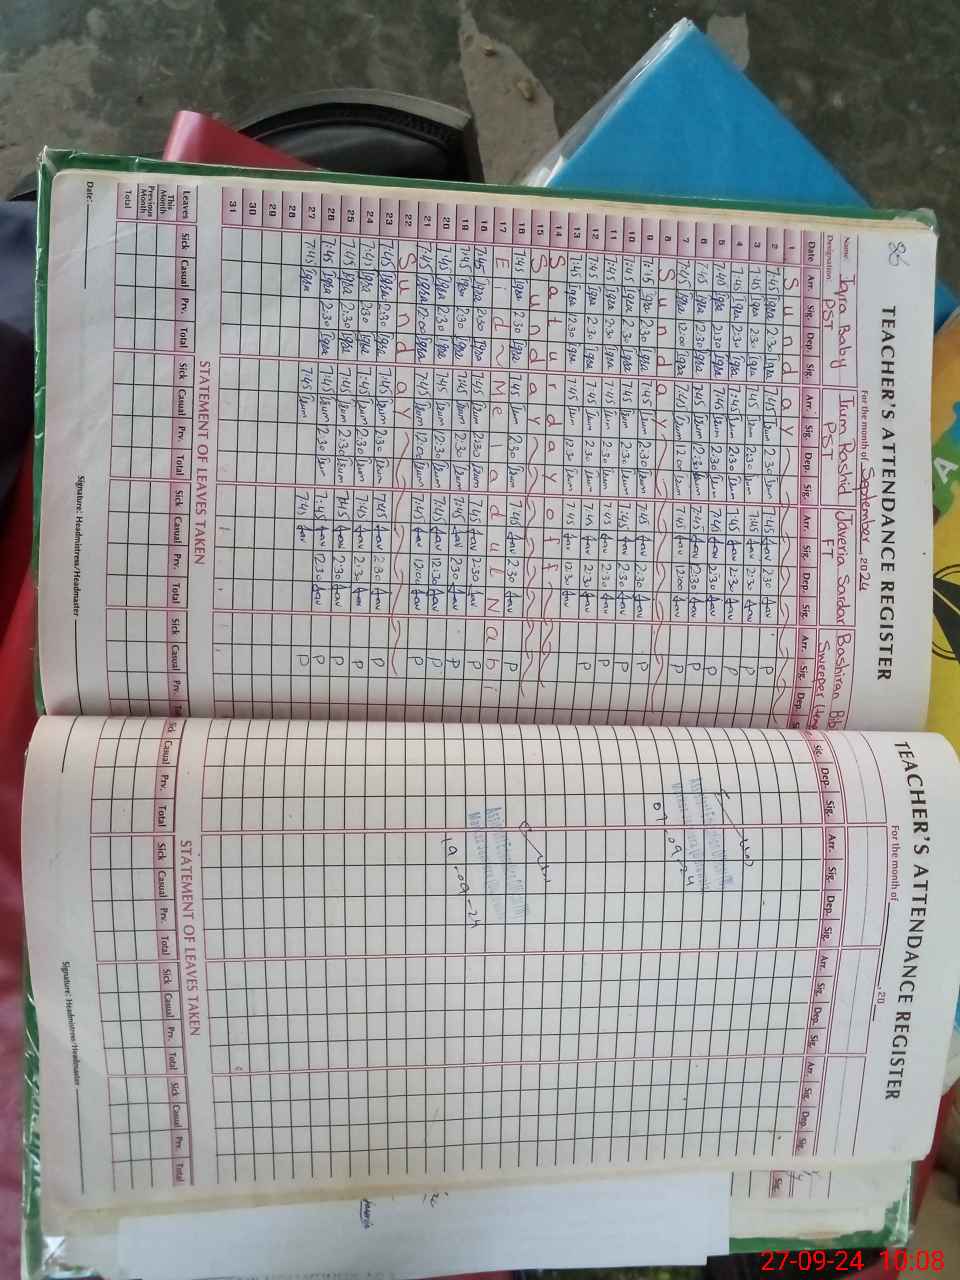 86
TEACHER'S ATTENDANCE REGISTER
For the month of September 2024
Name: Iqra Baby Irum Rashid Javeria Sardar Bashiran Bibi
Designation: PST PST FT Sweeper
Date Arr. Sig. Dep. Sig. Arr. Sig. Dep. Sig. Arr. Sig. Dep. Sig. Arr. Sig. Dep. S
1 Sunday
2 7:45 Iqra 2:30 Iqra 7:45 Irum 2:30 Irum 7:45 Jav 2:30 Jav P
3 7:45 Iqra 2:30 Iqra 7:45 Irum 2:30 Irum 7:45 Jav 2:30 Jav P
4 7:45 Iqra 2:30 Iqra 7:45 Irum 2:30 Irum 7:45 Jav 2:30 Jav P
5 7:45 Iqra 2:30 Iqra 7:45 Irum 2:30 Irum 7:45 Jav 2:30 Jav P
6 7:45 Iqra 2:30 Iqra 7:45 Irum 2:30 Irum 7:45 Jav 2:30 Jav P
7 7:45 Iqra 12:00 Iqra 7:45 Irum 12:00 Irum 7:45 Jav 12:00 Jav P
8 Sunday
9 7:45 Iqra 2:30 Iqra 7:45 Irum 2:30 Irum 7:45 Jav 2:30 Jav P
10 7:45 Iqra 2:30 Iqra 7:45 Irum 2:30 Irum 7:45 Jav 2:30 Jav P
11 7:45 Iqra 2:30 Iqra 7:45 Irum 2:30 Irum 7:45 Jav 2:30 Jav P
12 7:45 Iqra 2:30 Iqra 7:45 Irum 2:30 Irum 7:45 Jav 2:30 Jav P
13 7:45 Iqra 12:30 Iqra 7:45 Irum 12:30 Irum 7:45 Jav 12:30 Jav
14 Saturday off
15 Sunday
16 7:45 Iqra 2:30 Iqra 7:45 Irum 2:30 Irum 7:45 Jav 2:30 Jav P
17 Eid Melad ul Nabi
18 7:45 Iqra 2:30 Iqra 7:45 Irum 2:30 Irum 7:45 Jav 2:30 Jav P
19 7:45 Iqra 2:30 Iqra 7:45 Irum 2:30 Irum 7:45 Jav 2:30 Jav P
20 7:45 Iqra 12:30 Iqra 7:45 Irum 12:30 Irum 7:45 Jav 12:30 Jav P
21 7:45 Iqra 12:00 Iqra 7:45 Irum 12:00 Irum 7:45 Jav 12:00 Jav P
22 Sunday
23 7:45 Iqra 2:30 Iqra 7:45 Irum 2:30 Irum 7:45 Jav 2:30 Jav P
24 7:45 Iqra 2:30 Iqra 7:45 Irum 2:30 Irum 7:45 Jav 2:30 Jav P
25 7:45 Iqra 2:30 Iqra 7:45 Irum 2:30 Irum 7:45 Jav 2:30 Jav P
26 7:45 Iqra 2:30 Iqra 7:45 Irum 2:30 Irum 7:45 Jav 12:30 Jav P
27 7:45 Iqra 7:45 Irum 7:45 Jav P
28
29
30
31
STATEMENT OF LEAVES TAKEN
Leaves Sick Casual Prv. Total Sick Casual Prv. Total Sick Casual Prv. Total Sick Casual Prv.
This Month
Previous Month
Total
Date: Signature: Headmistress/Headmaster
TEACHER'S ATTENDANCE REGISTER
For the month of , 20
Sig. Dep. Sig. Arr. Sig. Dep. Sig. Arr. Sig. Dep. Sig. Arr. Sig. Dep. Sig.
07-09-24
19-09-24
STATEMENT OF LEAVES TAKEN
Sick Casual Prv. Total Sick Casual Prv. Total Sick Casual Prv. Total Sick Casual Prv. Total
Signature: Headmistress/Headmaster
Sig.
27-09-24 10:08